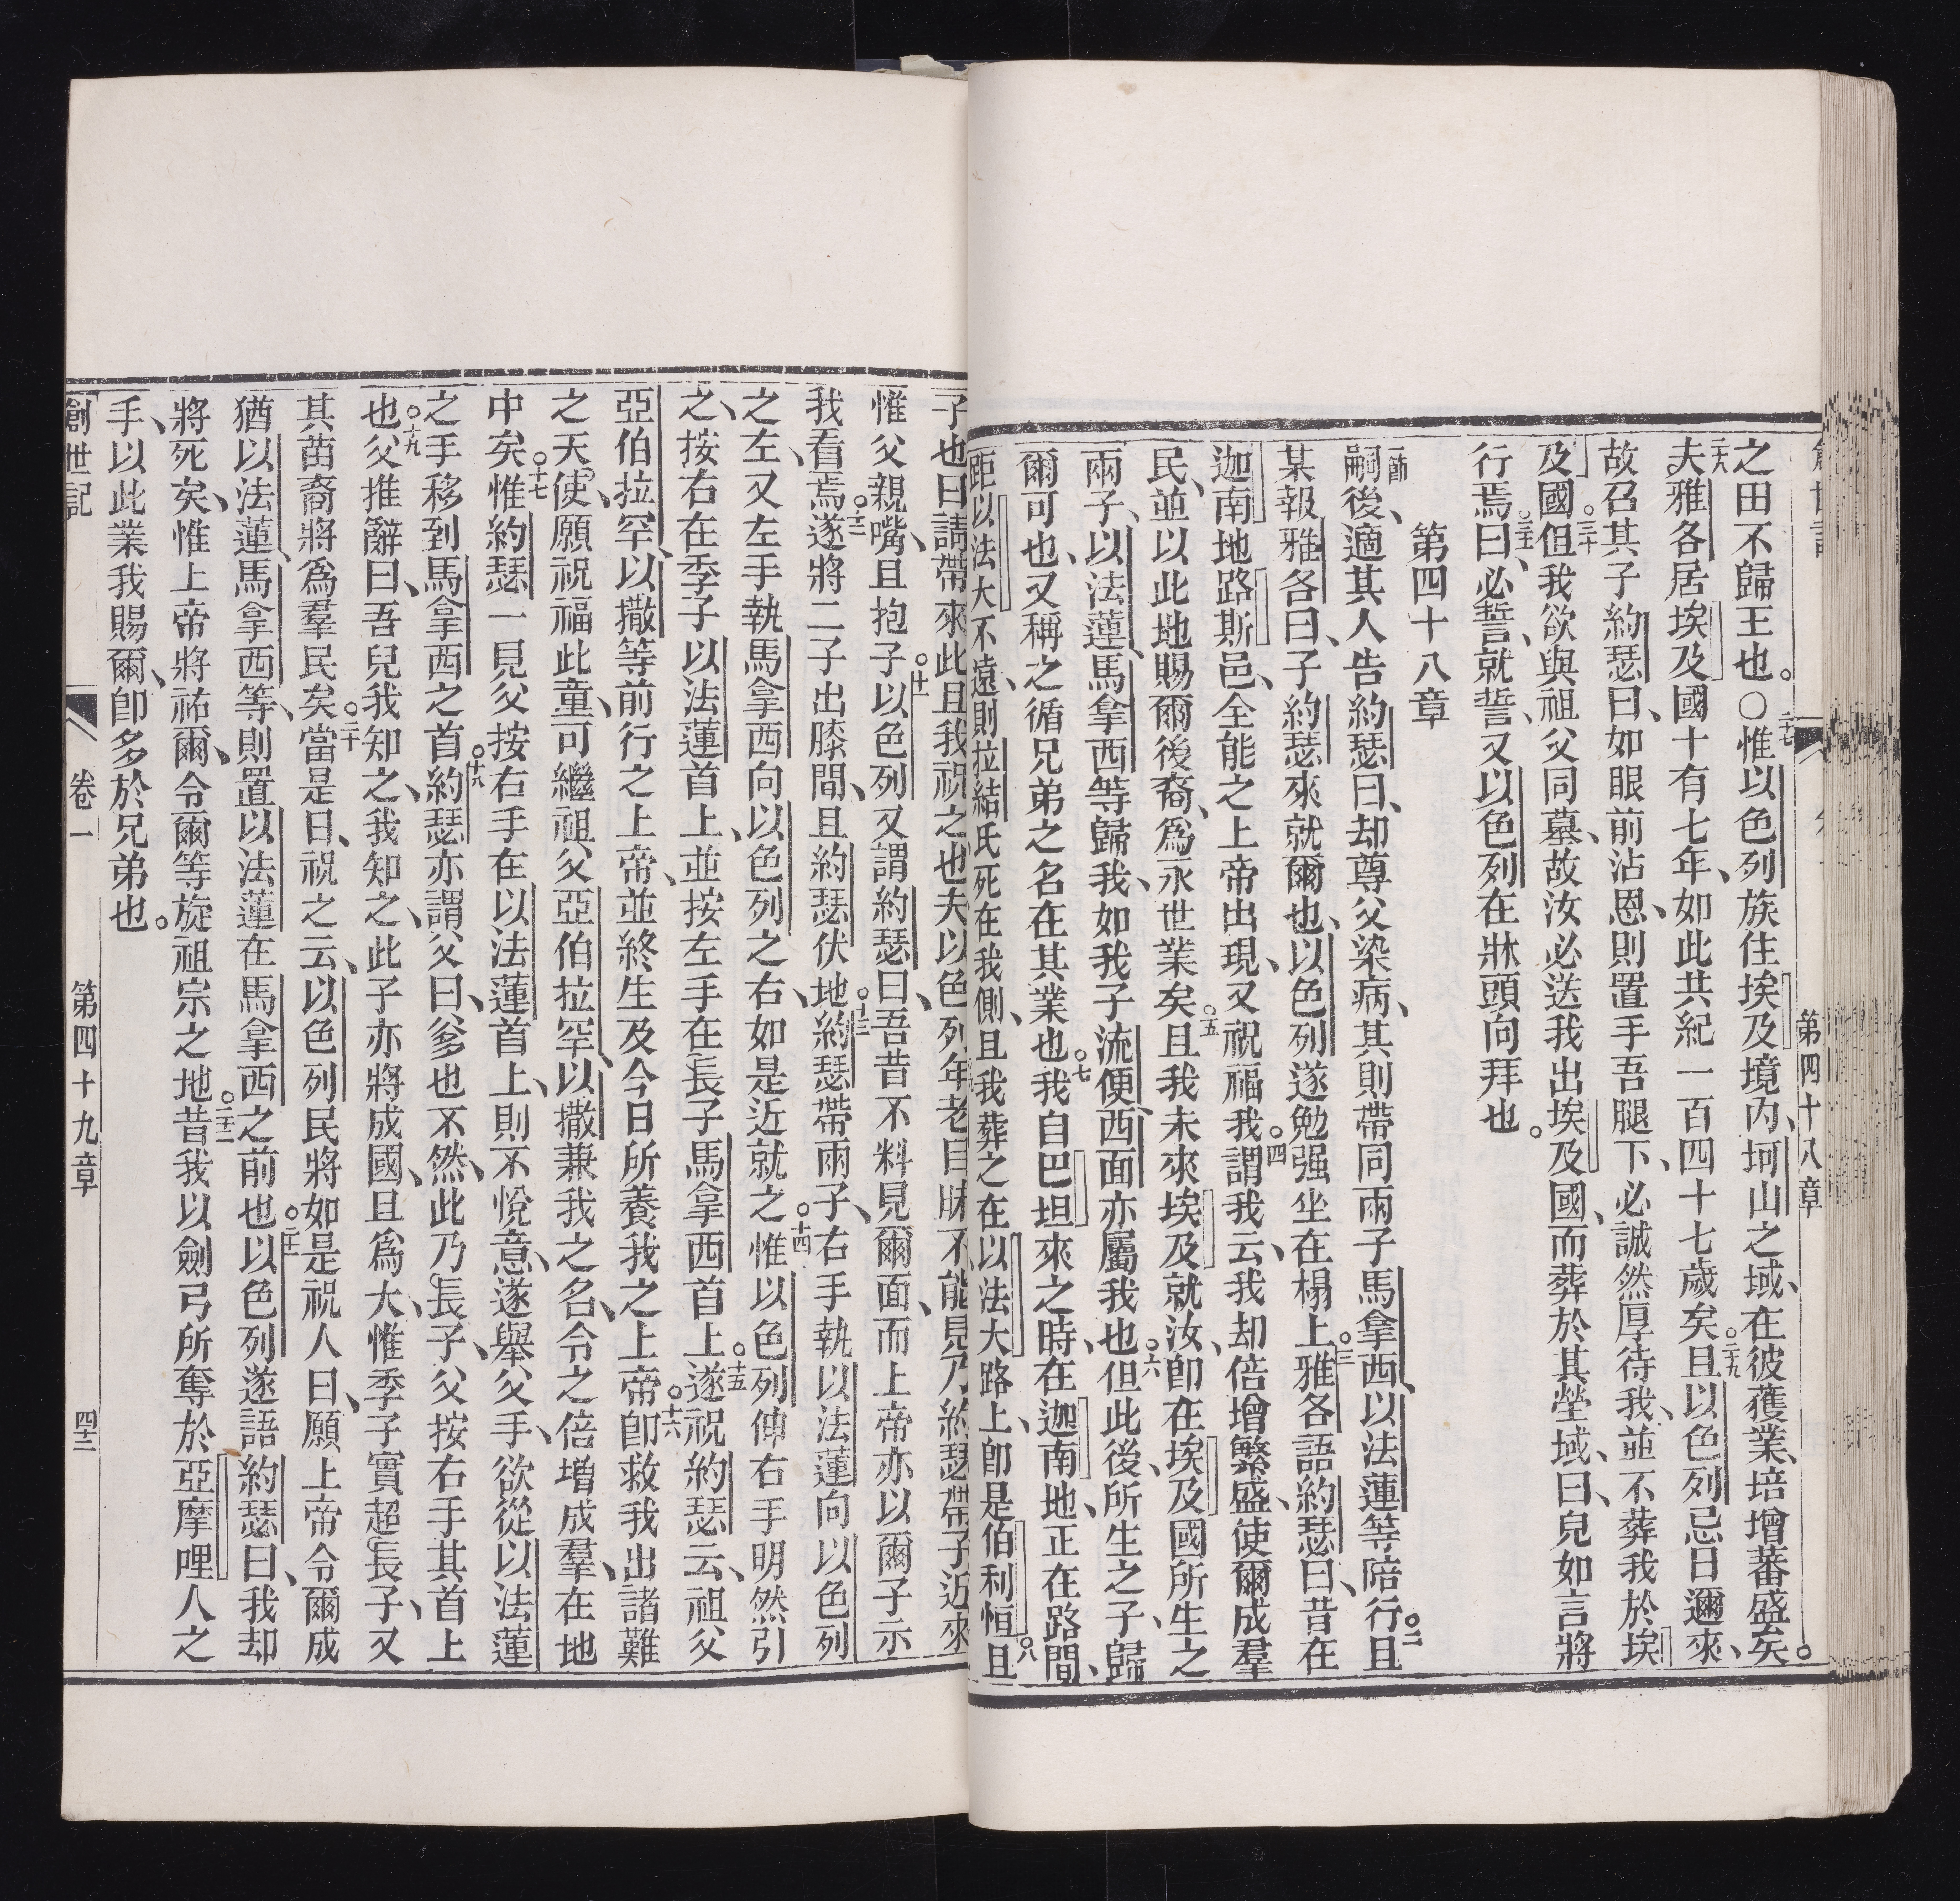 第四十八章
之田不歸王也。○二十七惟以色列族住埃及境內、坷山之域、在彼獲業、培增蕃盛矣。
二十八夫雅各居埃及國十有七年、如此共紀一百四十七歲矣。二十九且以色列忌日邇來、
故召其子約瑟曰、如眼前沾恩、則置手吾腿下、必誠然厚待我、並不葬我於埃
及國。三十但我欲與祖父同墓、故汝必送我出埃及國、而葬於其塋域、曰、兒如言將
行焉。三十一曰、必誓、就誓、又以色列在牀頭向拜也。
第四十八章
一節嗣後、適其人告約瑟曰、却尊父染病、其則帶同兩子馬拿西、以法蓮等陪行。二且
某報雅各曰、子約瑟來就爾也、以色列遂勉强坐在榻上。三雅各語約瑟曰、昔在
迦南地路斯邑、全能之上帝出現、又祝福我。四謂我云、我却倍增繁盛、使爾成羣
民、並以此地賜爾後裔、爲永世業矣。五且我未來埃及就汝、卽在埃及國所生之
兩子、以法蓮、馬拿西等歸我、如我子流便、西面亦屬我也。六但此後、所生之子、歸
爾可也、又稱之循兄弟之名在其業也。七我自巴坦來之時、在迦南地、正在路間、
距以法大不遠、則拉結氏死在我側、且我葬之在以法大路上、卽是伯利恒。八且
子也曰請帶來此且我祝之也夫以色列年老目昧不能見乃約瑟帶子近來
惟父親嘴、且抱子。十一以色列又謂約瑟曰、吾昔不料見爾面、而上帝亦以爾子示
我看焉。十二遂將二子出膝間、且約瑟伏地。十三約瑟帶兩子、右手執以法蓮向以色列
之左、又左手執馬拿西向以色列之右、如是近就之。十四惟以色列伸右手明然引
之、按右在季子以法蓮首上、並按左手在長子馬拿西首上。十五遂祝約瑟云、祖父
亞伯拉罕、以撒等前行之上帝、並終生及今日所養我之上帝。十六卽救我出諸難
之天使、願祝福此童、可繼祖父亞伯拉罕、以撒兼我之名、令之倍增成羣、在地
中矣。十七惟約瑟一見父按右手在以法蓮首上、則不悅意、遂舉父手、欲從以法蓮
之手移到馬拿西之首。十八約瑟亦謂父曰、爹也不然、此乃長子、父按右手其首上
也。十九父推辭曰、吾兒我知之、我知之、此子亦將成國、且爲大、惟季子實超長子、又
其苗裔將爲羣民矣。二十當是日、祝之云、以色列民將如是祝人曰、願上帝令爾成
猶以法蓮、馬拿西等、則置以法蓮在馬拿西之前也。二十一以色列遂語約瑟曰、我却
將死矣、惟上帝將祐爾、令爾等旋祖宗之地。二十二昔我以劍弓所奪於亞摩哩人之
手、以此業我賜爾、卽多於兄弟也。
創世記 卷一 第四十九章 四十二